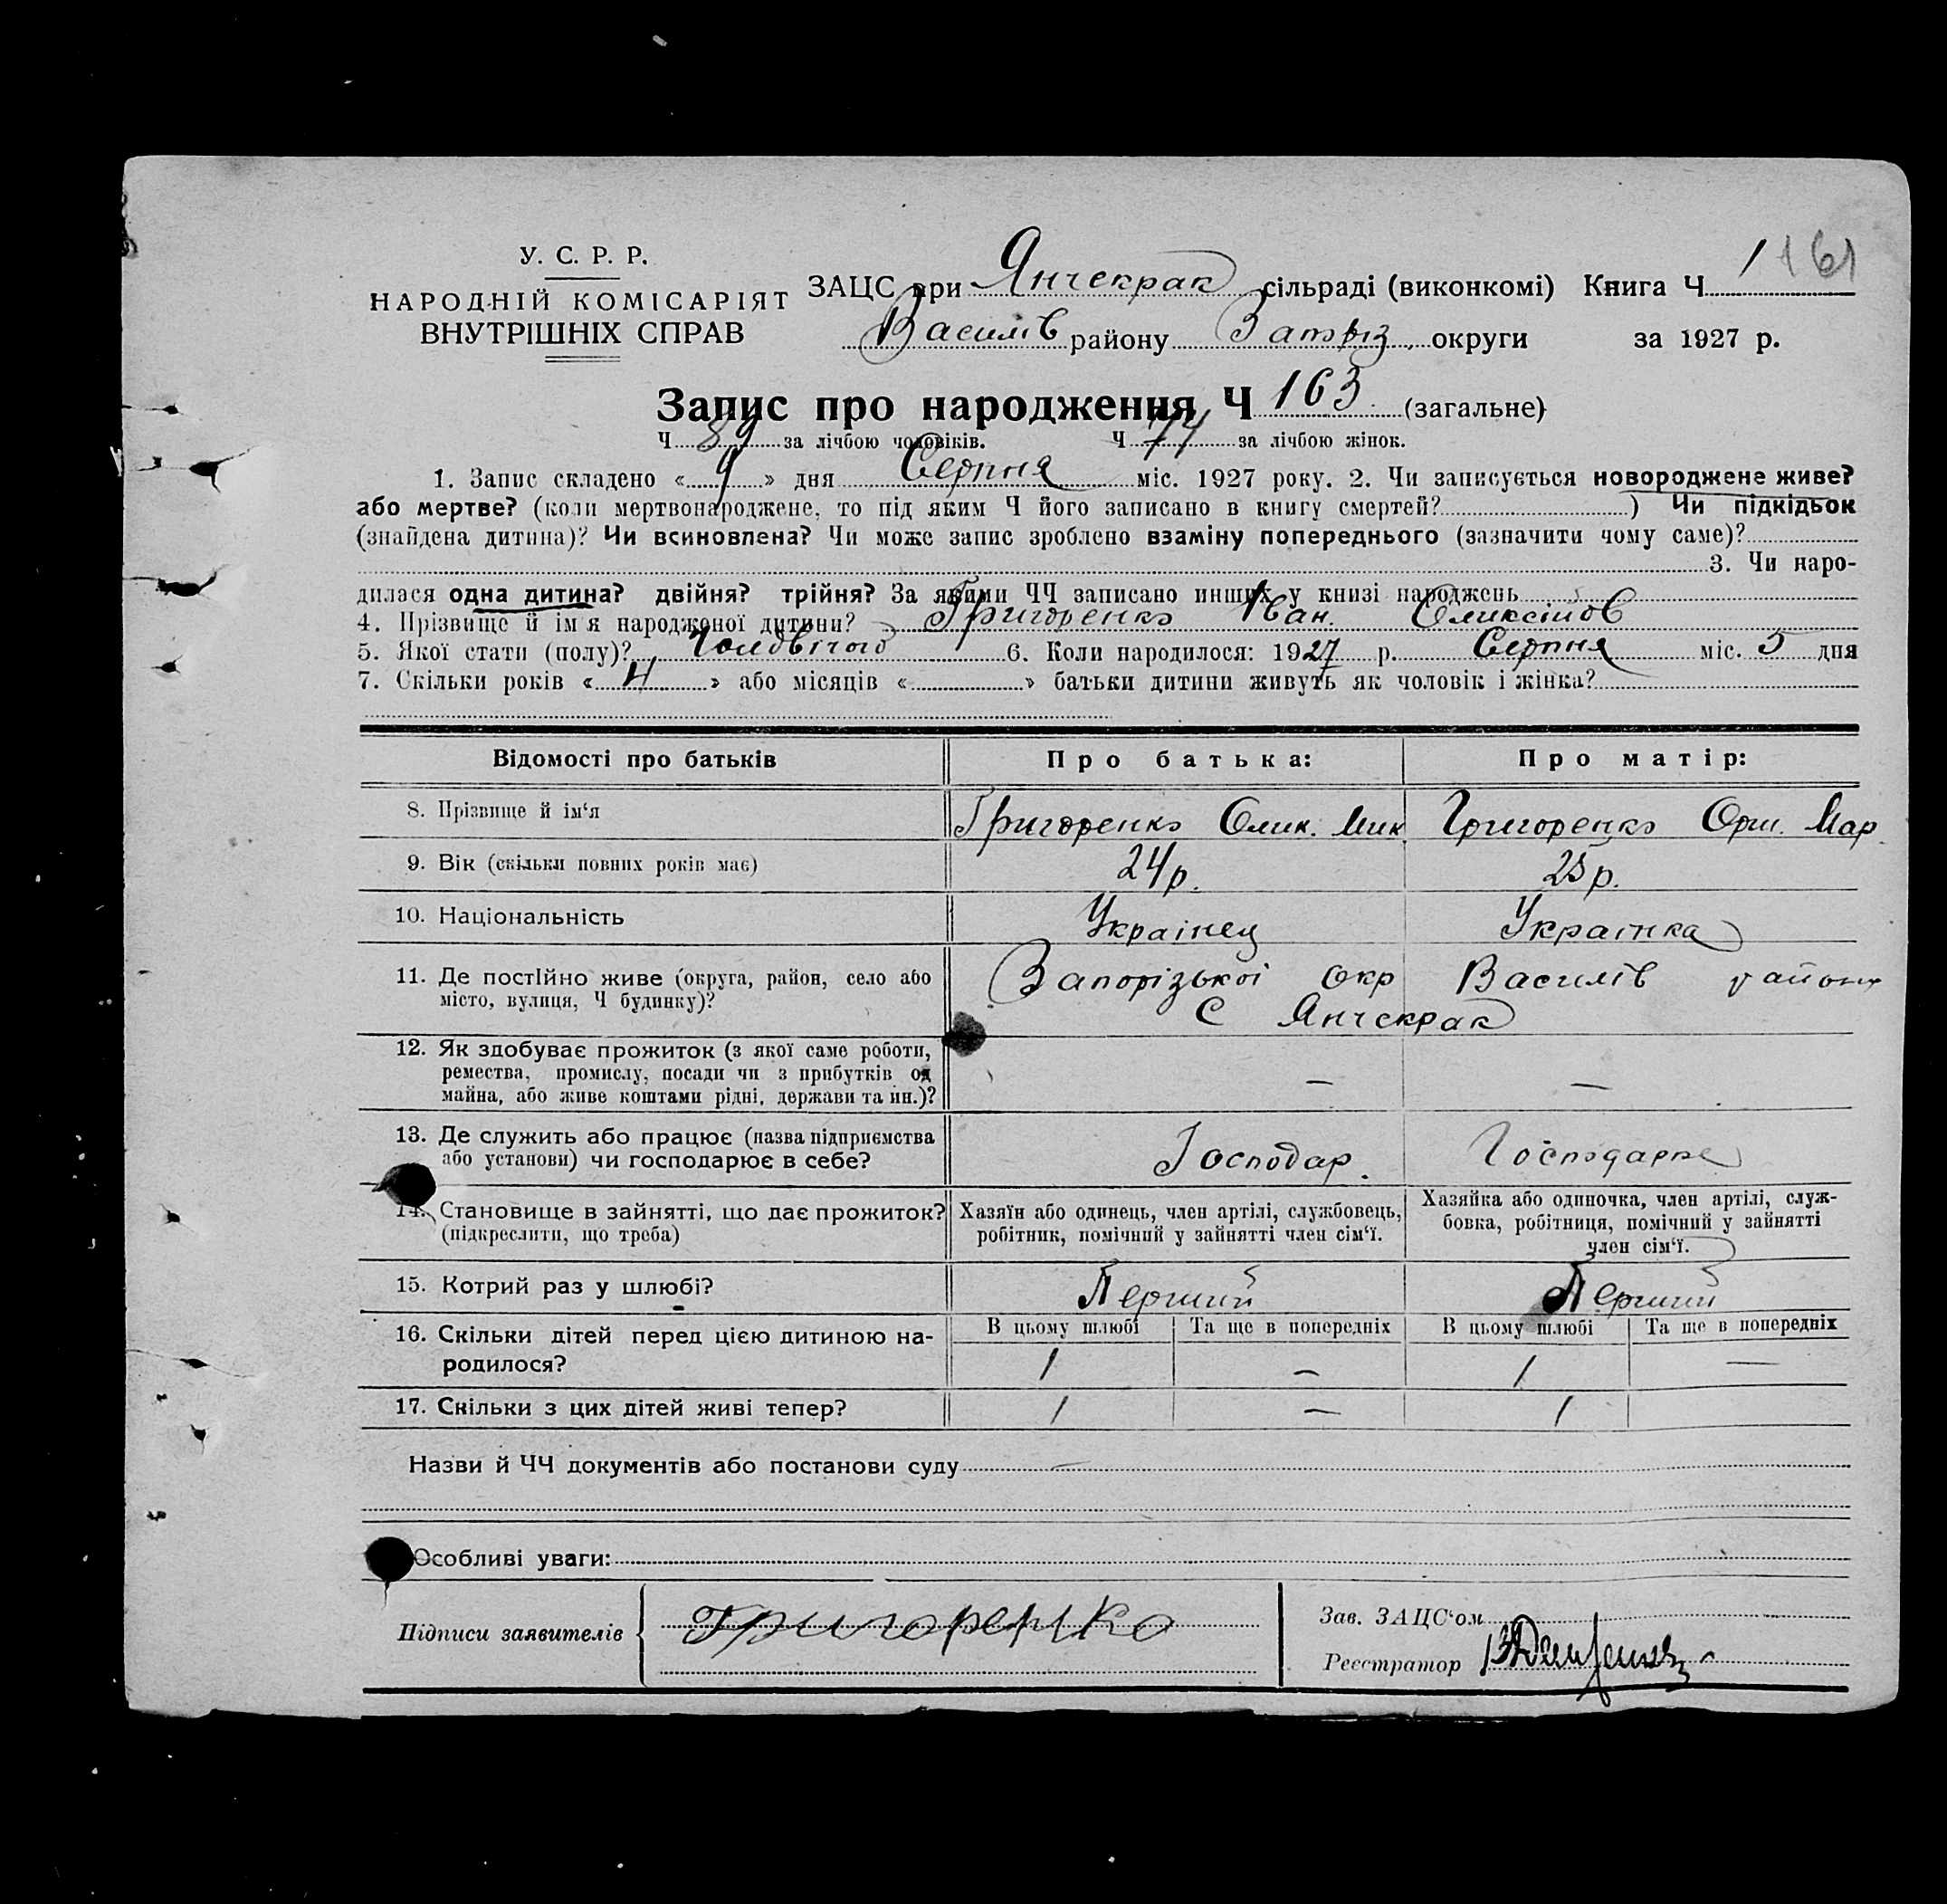 У. С. Р. Р.
НАРОДНІЙ КОМІСАРІЯТ
ВНУТРІШНІХ СПРАВ
ЗАЦС при Янчекрак сільраді (виконкомі) Книга Ч 1 161
Василів району Запоріз. округи за 1927 р.
Запис про народження Ч 163 (загальне)
Ч 89 за лічбою чоловіків. Ч 74 за лічбою жінок.
1. Запис складено « 9 » дня Серпня міс. 1927 року. 2. Чи записується новороджене живе?
або мертве? (коли мертвонароджене, то під яким Ч його записано в книгу смертей? ) Чи підкідьок
(знайдена дитина)? Чи всиновлена? Чи може запис зроблено взаміну попереднього (зазначити чому саме)?
3. Чи наро-
дилася одна дитина? двійня? трійня? За якими ЧЧ записано инших у книзі народжень
4. Прізвище й імя народженої дитини? Григоренко Іван. Оликсіїов
5. Якої стати (полу)? Чоловічого 6. Коли народилося: 1927 р. Серпня міс. 5 дня
7. Скільки років « 4 » або місяців « » батьки дитини живуть як чоловік і жінка?
Відомості про батьків Про батька: Про матір:
8. Прізвище й ім‘я Григоренко Олик. Мик Григоренко Ори. Мар.
9. Вік (скільки повних років має) 24 р. 25 р.
10. Національність Українец Українка
11. Де постІйно живе (округа, район, село або Запорізькоі Окр Василів району
місто, вулиця, Ч будинку)? С Янчекрак
12. Як здобуває прожиток (з якої саме роботи,
ремества, промислу, посади чи з прибутків од — —
майна, або живе коштами рідні, держави та ин.)?
13. Де служить або працює (назва підприємства
або установи) чи господарює в себе? Господар. Господарка
14. Становище в зайнятті, що дає прожиток? Хазяїн або одинець, член артілі, службовець, Хазяйка або одиночка, член артілі, служ-
(підкреслити, що треба) робітник, помічний у зайнятті член сім‘ї. бовка, робітниця, помічний у зайнятті
член сім‘ї.
15. Котрий раз у шлюбі? Перший Перший
16. Скільки дітей перед цією дитиною на- В цьому шлюбі Та ще в попередніх В цьому шлюбі Та ще в попередніх
родилося? 1 — 1 —
17. Скільки з цих дітей живі тепер? 1 — 1
Назви й ЧЧ документів або постанови суду —
Особливі уваги:
Підписи заявителів Григоренко Зав. ЗАЦС‘ом
Реєстратор